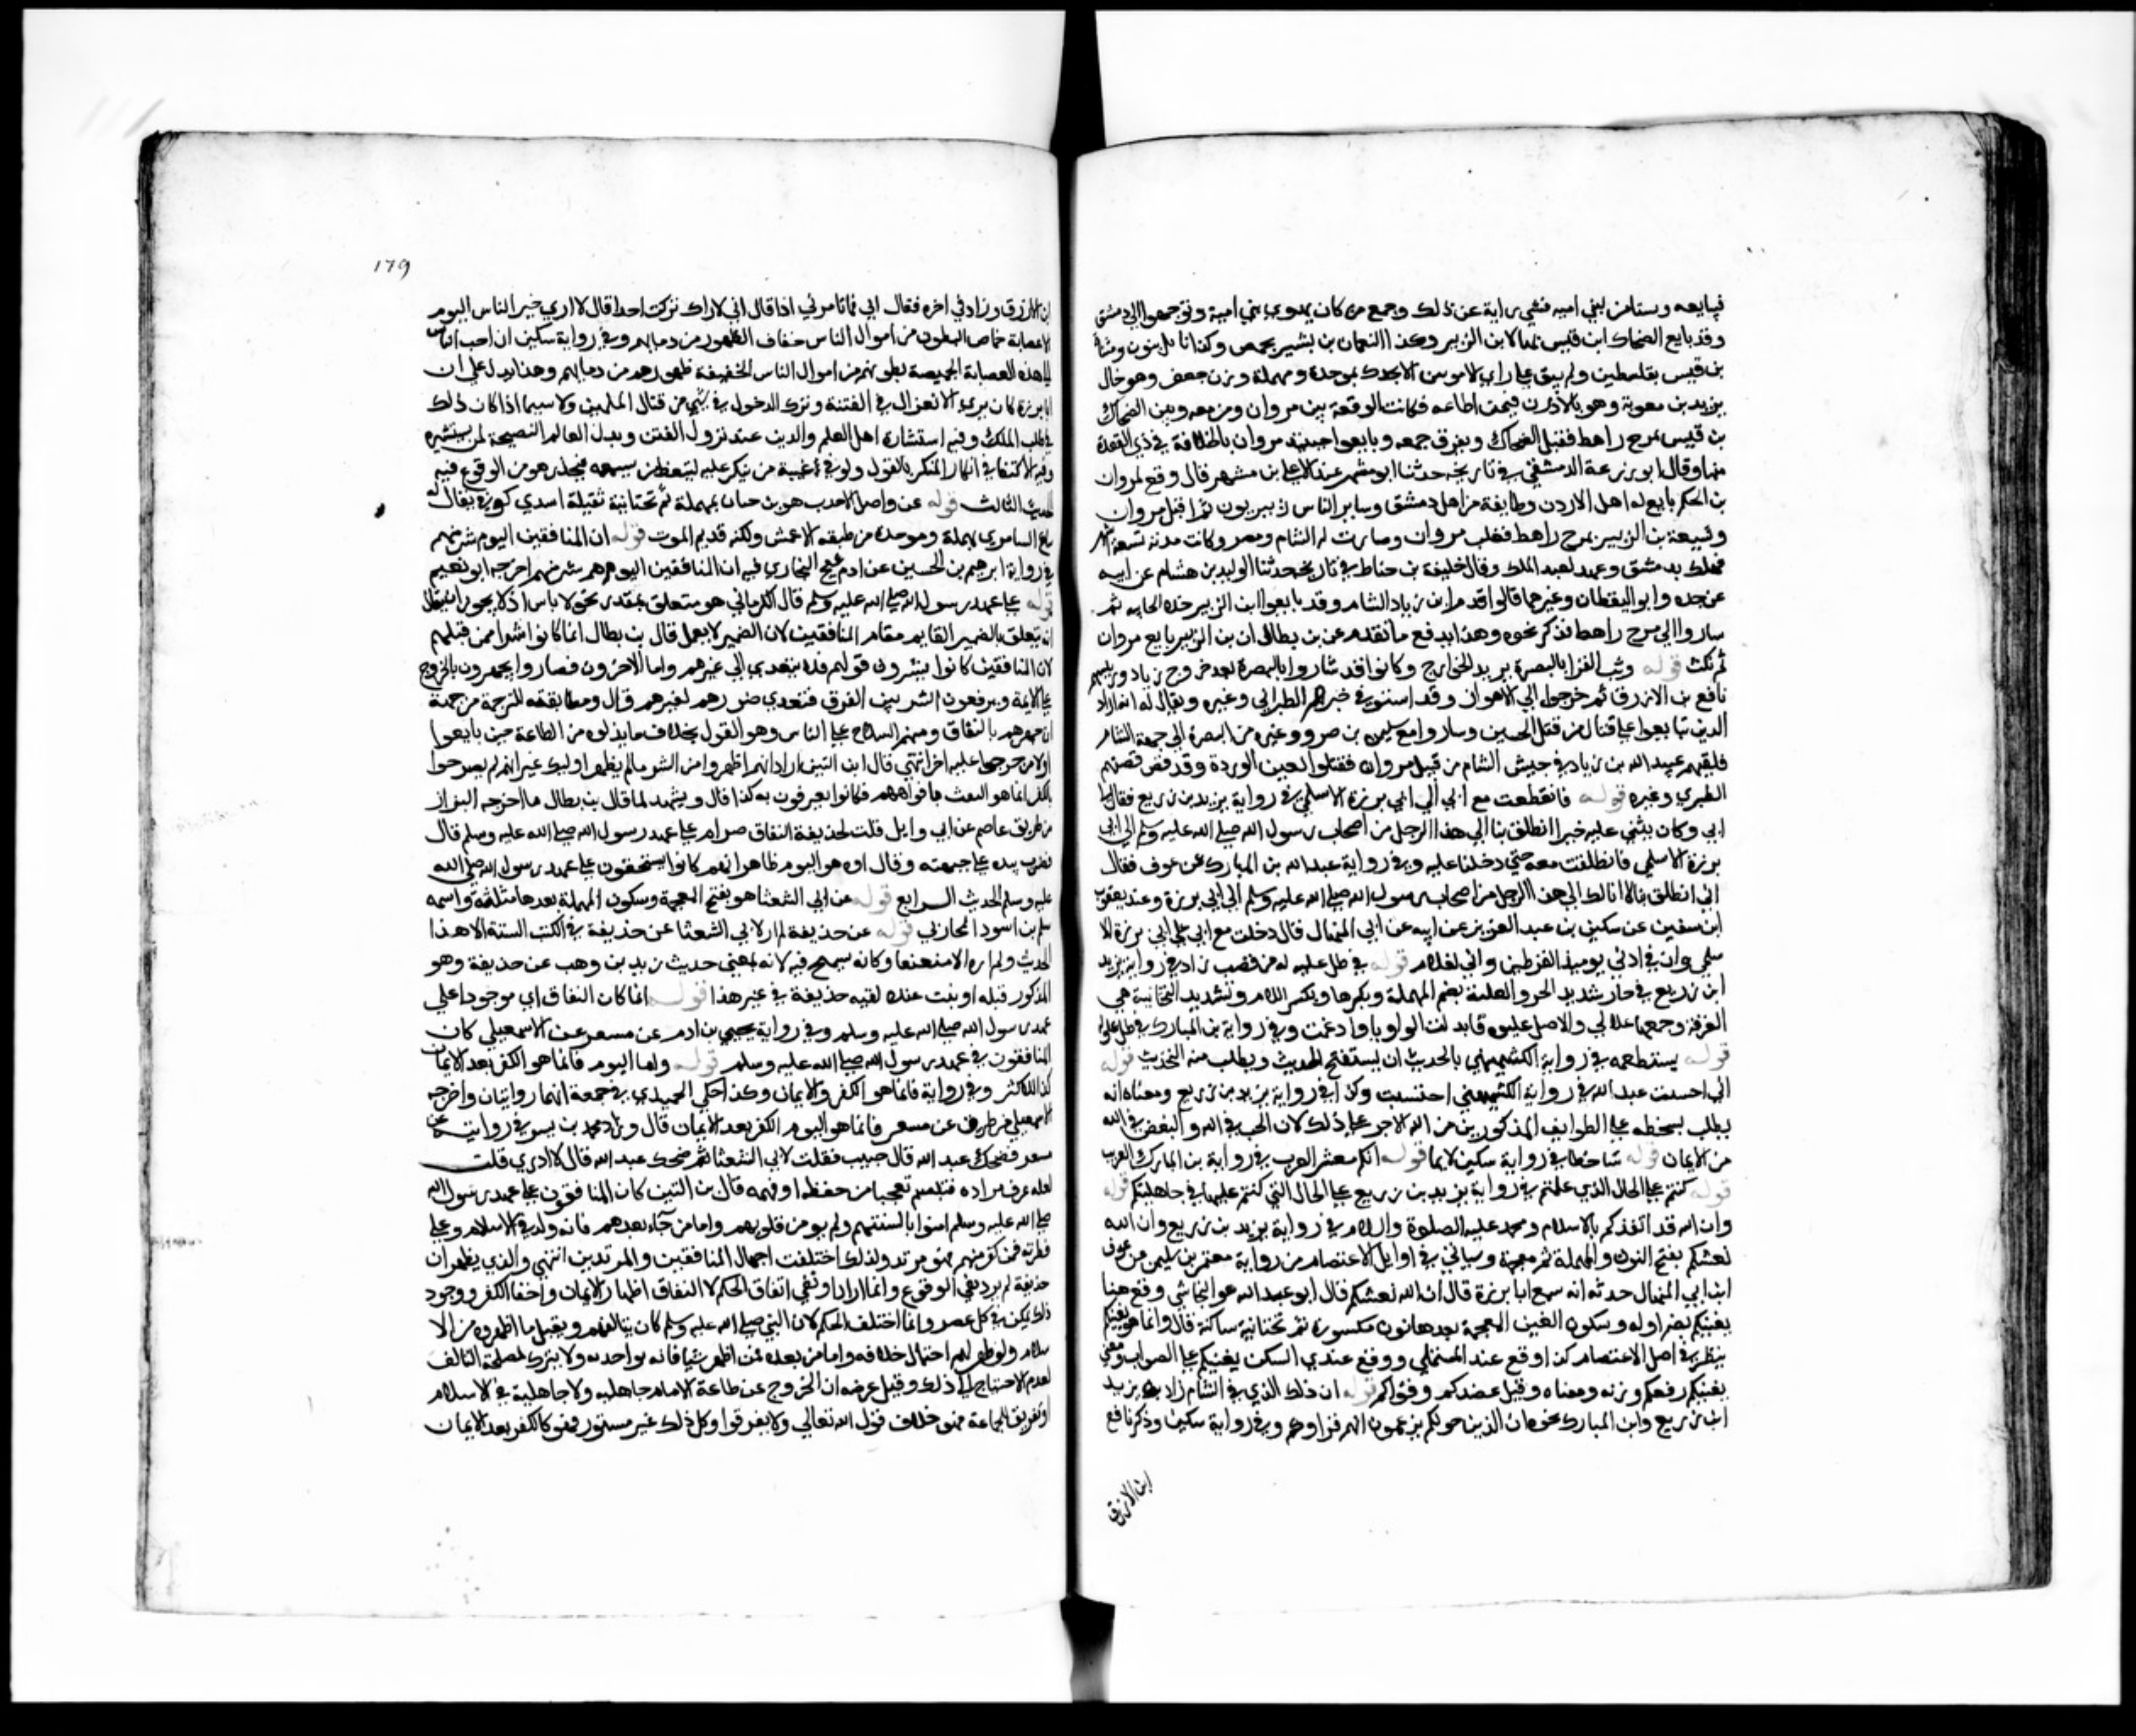 فيبايعه ويستامن لبني امية فثني راية عن ذلك وجمع من كان يهوي بني امية وتوجهوا الي دمشق
وقد بايع الضحاك ابن قيس بها لابن الزبير وكذا النعمان بن بشير بحمص وكذا ناتل بنون ومثناة
بن قيس بفلسطين ولم يبق علي راي الامويين الا بجدل بموحدة ومهملة وزن جعفر وهو خال
يزيد بن معوية وهو بالاردن فيمن اطاعه فكانت الوقعة بين مروان ومن معه وبين الضحاك
بن قيس بمرج راهط فقتل الضحاك وتفرق جمعه وبايعوا حينئذ مروان بالخلافة في ذي القعدة
منها وقال ابو زرعة الدمشقي في تاريخه حدثنا ابو مشهر عبد الاعلي بن مشهر قال وقع لمروان
بن الحكم بايع له اهل الاردن وطايفة من اهل دمشق وساير الناس زبيريون ثم اقتتل مروان
وشيعة بن الزبير بمرج راهط فغلب مروان وصارت له الشام ومصر وكانت مدته تسعة اشهر
فهلك بدمشق وعهد لعبد الملك وقال خليفة بن خياط في تاريخه حدثنا الوليد بن هشام عن ابيه
عن جده وابو اليقظان وغيرهما قالوا قدم ابن زياد الشام وقد بايعوا ابن الزبير خلا الجابيه ثم
ساروا الي مرج راهط فذكر نحوه وهذا يدفع ما تقدم عن بن بطال ان بن الزبير بايع مروان
ثم نكث قوله وثب القرا بالبصرة يريد الخوارج وكانوا قد ثاروا بالبصرة بعد خروج بن زياد ورييسهم
نافع بن الازرق ثم خرجوا الي الاهواز وقد استوفي خبرهم الطبراني وغيره ويقال انه اراد
الذين تبايعوا علي قتال من قتل الحسين وساروا مع سليمن بن صرد وغيره من البصرة الي جهة الشام
فلقيهم عبيد الله بن زياد في جيش الشام من قبل مروان فقتلوا بعين الوردة وقد قص قصتهم
الطبري وغيره قوله فانطلقت مع ابي الي ابي برزة الاسلمي في رواية يزيد بن زريع فقال لي
ابي وكان يثني عليه خيرا انطلق بنا الي هذا الرجل من اصحاب رسول الله صلي الله عليه وسلم الي ابي
برزة الاسلمي فانطلقت معه حتي دخلنا عليه وفي رواية عبد الله بن المبارك عن عوف فقال
ابي انطلق بنا لا ابا لك الي هذا الرجل من اصحاب رسول الله صلي الله عليه وسلم الي ابي برزة وعند يعقوب
ابن سفين عن سكين بن عبد العزيز عن ابيه عن ابي المنهال قال دخلت مع ابي علي ابي برزة الا
سلمي وان في اذني يوميذ لقرطين واني لغلام قوله في ظل عليه له من قصب زاد في رواية يزيد
ابن زريع في حار شديد الحر والعلية بضم المهملة وبكسرها وبكسر اللام وتشديد التحتانية هي
الغرفة وجمعها علالي والاصل عليوه فابدلت الواو ياء وادغمت وفي رواية بن المبارك في ظل علو له
قوله يستطعمه في رواية الكشميهني بالحديث ان يستفتح الحديث ويطلب منه التحديث قوله
اني احتسبت عبد الله في رواية الكشميهني احتسبت وكذا في رواية يزيد بن زريع ومعناه انه
يطلب بسخطه علي الطوايف المذكورين من الله الاجر علي ذلك لان الحب في الله والبغض في الله
من الايمان قوله ساخطا في رواية سكين لايما قوله انكم معشر العرب في رواية بن المبارك العرب
قوله كنتم علي الحال الذي علمتم في رواية يزيد بن زريع علي الحال التي كنتم عليها في جاهليتكم قوله
وان الله قد انقذكم بالاسلام ومحمد عليه الصلوة والسلام في رواية يزيد بن زريع وان الله
نعشكم بفتح النون والمهملة ثم معجمة وسياتي في اوايل الاعتصام من رواية معتمر بن سليمن عن عوف
ان ابي المنهال حدثه انه سمع ابا برزة قال ان الله نعشكم قال ابو عبد الله هو البخاري وقع هنا
يغنيكم بضم اوله وسكون الغين المعجمة بعدها نون مكسورة ثم تحتانية ساكنة قال وانما هو نعشكم
ينظر في اصل الاعتصام كذا وقع عند المستملي ووقع عند بن السكن نعشكم علي الصواب ومعني
نعشكم رفعكم وزنه ومعناه وقيل عضدكم وقواكم قوله ان ذلك الذي في الشام زاد يزيد
ابن زريع وابن المبارك نحو ان الذين حولكم يزعمون انهم قراوكم وفي رواية سكين وذكر نافع
ابن الازرق
179
ابن الازرق وزاد في اخره فقال ابي فما تامرني اذا قال اني لا اراك تركت احدا قال لا اري خير الناس اليوم
الا عصابة خماص البطون من اموال الناس خفاف الظهور من دمايهم وفي رواية سكين ان احب الناس
الي هذه العصابة الخميصة بطونهم من اموال الناس الخفيفة ظهورهم من دمايهم وهذا يدل علي ان
ابا برزة كان يري الانعزال في الفتنة وترك الدخول في شي من قتال المسلمين ولا سيما اذا كان ذلك
في طلب الملك وفيه استشارة اهل العلم والدين عند نزول الفتن وبذل العالم النصيحة لمن يستشيره
وفيه الاكتفا في انكار المنكر بالقول ولو في غيبة من ينكر عليه ليتعظ من يسمعه فيحذر هو من الوقوع فيه
الحديث الثالث قوله عن واصل الاحدب هو بن حيان بمهملة ثم تحتانية ثقيلة اسدي كوفي يقال له
بياع السابري بمهملة وموحدة من طبقه الاعمش ولكنه قديم الموت قوله ان المنافقين اليوم شر منهم
في رواية ابرهيم بن الحسين عن ادم شيخ البخاري فيه ان المنافقين اليوم هم شر منهم اخرجه ابو نعيم
قوله علي عهد رسول الله صلي الله عليه وسلم قال الكرماني هو متعلق بمقدر نحو لا باس اذ لا يجوز ان يقال
انه يتعلق بالضمير القايم مقام المنافقين لان الضمير لا يعمل قال بن بطال انما كانوا شرا ممن قبلهم
لان المنافقين كانوا يسرون قولهم فلا يتعدي الي غيرهم واما الاخرون فصاروا يجهرون بالخروج
علي الايمة ويرفعون الشر بين الفرق فتعدي ضررهم لغيرهم قال ومطابقته للترجمة من جهة
ان جهرهم بالنفاق ومنهم السلاح علي الناس وهو القول بخلاف ما بذلوه من الطاعة حين بايعوا
اولا من خرجوا عليه اخرا انتهي قال ابن التين اراد انهم اظهروا من الشر ما لم يظهر اوليك غير انهم لم يصرحوا
بالكفر انما هو النفث بافواههم فكانوا يعرفون به كذا قال ويشهد لما قال بن بطال ما اخرجه البزار
من طريق عاصم عن ابي وايل قلت لحذيفة النفاق اليوم شر ام علي عهد رسول الله صلي الله عليه وسلم قال
فضرب بيده علي جبهته وقال اوه هو اليوم ظاهر انهم كانوا يستخفون علي عهد رسول الله صلي الله
عليه وسلم الحديث الرابع قوله عن ابي الشعثا هو بفتح المعجمة وسكون المهملة بعدها مثلثة واسمه
سليم بن اسود المحاربي قوله عن حذيفة لم ار لابي الشعثا عن حذيفة في الكتب الستة الا هذا
الحديث ولم اره الا معنعنا وكانه تسمح فيه لانه بمعني حديث زيد بن وهب عن حذيفة وهو
المذكور قبله او ثبت عنده لقيه حذيفة في غير هذا قوله انما كان النفاق اي موجودا علي
عهد رسول الله صلي الله عليه وسلم وفي رواية يحيي بن ادم عن مسعر عند الاسمعيلي كان
المنافقون في عهد رسول الله صلي الله عليه وسلم قوله واما اليوم فانما هو الكفر بعد الايمان
كذا للاكثر وفي رواية فانما هو الكفر والايمان وكذا حكي الحميدي في جمعه انهما روايتان واخرجه
الاسمعيلي من طريق عن مسعر فانما هو اليوم الكفر بعد الايمان قال وزاد محمد بن بشر في روايته عن
مسعر فضحك عبد الله قال حبيب فقلت لابي الشعثا مم ضحك عبد الله قال لا ادري قلت
لعله عرف مراده فتبسم تعجبا من حفظه او فهمه قال بن التين كان المنافقون علي عهد رسول الله
صلي الله عليه وسلم امنوا بالسنتهم ولم يومن قلوبهم واما من جاء بعدهم فانه ولد في الاسلام وعلي
فطرته فمن كفر منهم فهو مرتد ولذلك اختلفت احكام المنافقين والمرتدين انتهي والذي يظهر ان
حذيفة لم يرد نفي الوقوع وانما اراد نفي اتفاق الحكم لان النفاق اظهار الايمان واخفا الكفر ووجود
ذلك ممكن في كل عصر وانما اختلف الحكم لان النبي صلي الله عليه وسلم كان يتالفهم ويقبل ما اظهروه من الا
سلام ولو ظهر لهم احتمال خلافه واما من بعده فمن اظهر شيا فانه يواخذ به ولا يترك لمصلحة التالف
لعدم الاحتياج الي ذلك وقيل غرضه ان الخروج عن طاعة الامام جاهليه ولا جاهلية في الاسلام
او تفريق الجماعة فهو خلاف قول الله تعالي ولا تفرقوا وكل ذلك غير مستور فهو كالكفر بعد الايمان